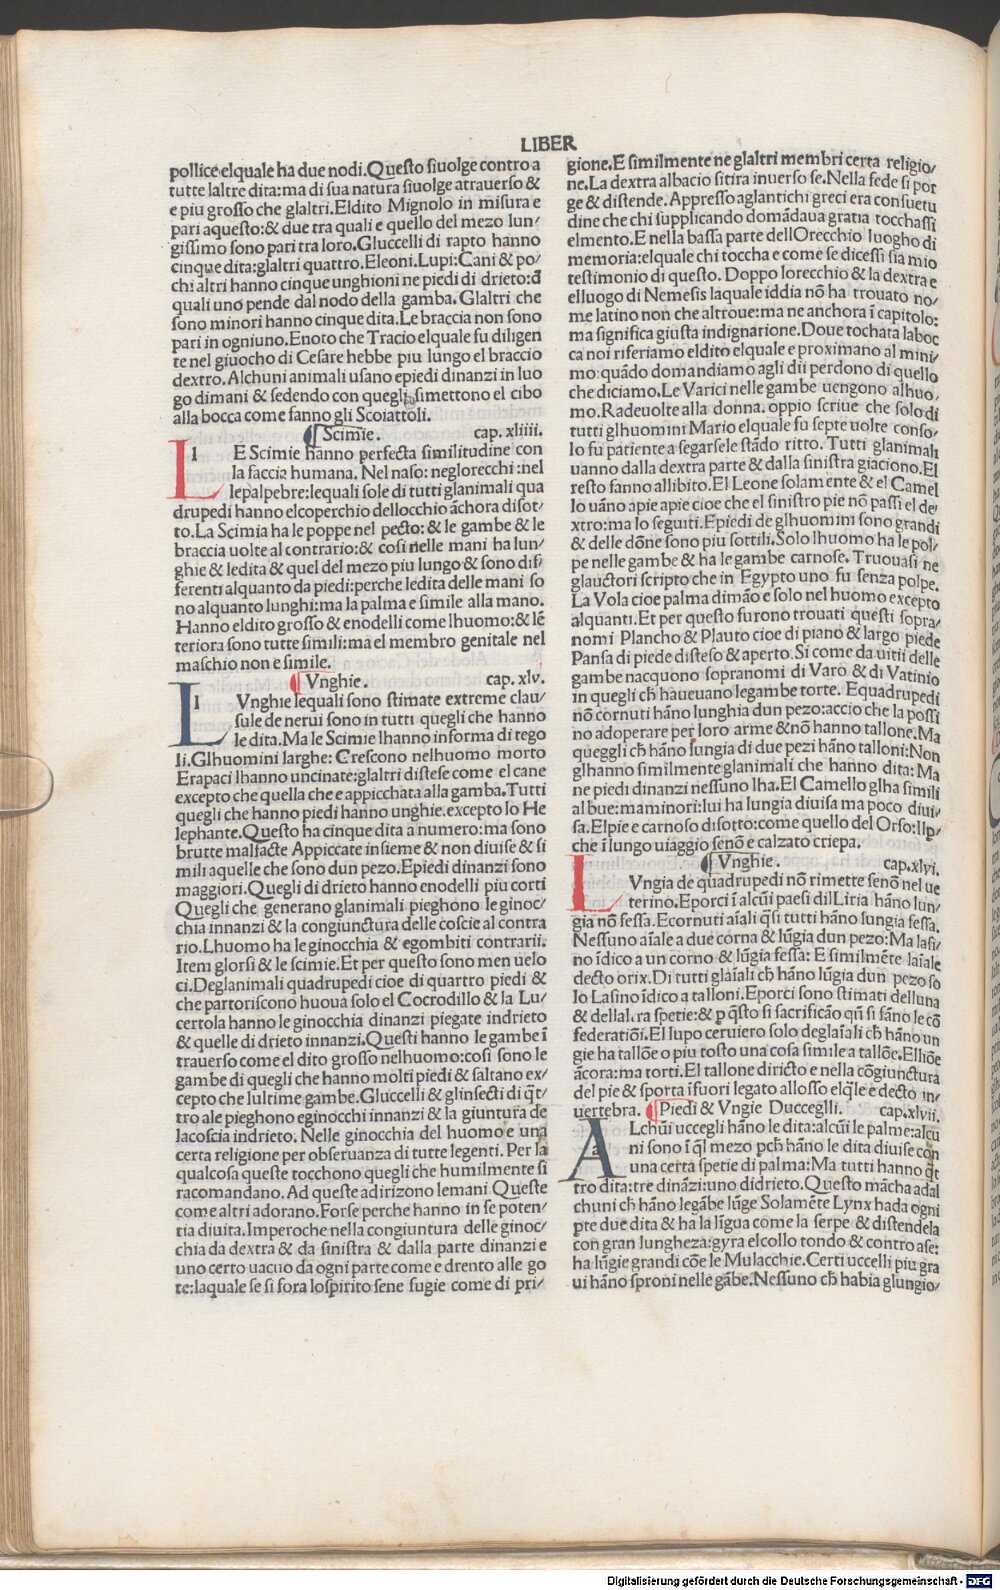 LIBER
pollice elquale ha due nodi. Questo siuolge contro a
tutte laltre dita: ma di sua natura siuolge atrauerso &
e piu grosso che glaltri. Eldito Mignolo in misura e
pari aquesto: & due tra quali e quello del mezo lun/
gissimo sono pari tra loro. Gluccelli di rapto hanno
cinque dita: glaltri quattro. Eleoni. Lupi: Cani & po/
chi altri hanno cinque unghioni ne piedi di drieto: d̄
quali uno pende dal nodo della gamba. Glaltri che
sono minori hanno cinque dita. Le braccia non sono
pari in ogniuno. Enoto che Tracio elquale fu diligen
te nel giuocho di Cesare hebbe piu lungo el braccio
dextro. Alchuni animali usano epiedi dinanzi in luo
go dimani & sedendo con quegli simettono el cibo
alla bocca come fanno gli Scoiattoli.
¶ Scimie. cap. xliiii.
L l E Scimie hanno perfecta similitudine con
la faccia humana. Nel naso: neglorecchi: nel
lepalpebre: lequali sole di tutti glanimali qua
drupedi hanno elcoperchio dellocchio ā̄chora disot/
to. La Scimia ha le poppe nel pecto: & le gambe & le
braccia uolte al contrario: & cosi nelle mani ha lun/
ghie & ledita & quel del mezo piu lungo & sono dif
ferenti alquanto da piedi: perche ledita delle mani so
no alquanto lunghi: ma la palma e simile alla mano.
Hanno eldito grosso & enodelli come lhuomo: & lē
teriora sono tutte simili: ma el membro genitale nel
maschio non e simile.
¶ Vnghie. cap. xlv.
L l Vnghie lequali sono stimate extreme clau/
sule de nerui sono in tutti quegli che hanno
le dita. Ma le Scimie lhanno informa di tego
li. Glhuomini larghe: Crescono nelhuomo morto
Erapaci lhanno uncinate: glaltri distese come el cane
excepto che quella che e appicchata alla gamba. Tutti
quegli che hanno piedi hanno unghie. excepto lo He
lephante. Questo ha cinque dita a numero: ma sono
brutte malfacte Appiccate insieme & non diuise & si
mili aquelle che sono dun pezo. Epiedi dinanzi sono
maggiori. Quegli di drieto hanno enodelli piu corti
Quegli che generano glanimali pieghono le ginoc/
chia innanzi & la congiunctura delle coscie al contra
rio. Lhuomo ha le ginocchia & egombiti contrarii.
Item glorsi & le scimie. Et per questo sono men uelo
ci. Deglanimali quadrupedi cioe di quartro piedi &
che partoriscono huoua solo el Cocrodillo & la Lu/
certola hanno le ginocchia dinanzi piegate indrieto
& quelle di drieto innanzi. Questi hanno le gambe ī
trauerso come el dito grosso nelhuomo: cosi sono le
gambe di quegli che hanno molti piedi & saltano ex/
cepto che lultime gambe. Gluccelli & glinsecti di q̄t/
tro ale pieghono eginocchi innanzi & la giuntura de
lacoscia indrieto. Nelle ginocchia del huomo e una
certa religione per obseruanza di tutte legenti. Per la
qualcosa queste tocchono quegli che humilmente si
racomandano. Ad queste adirizono lemani Queste
come altri adorano. Forse perche hanno in se poten/
tia diuita. Imperoche nella congiuntura delle ginoc/
chia da dextra & da sinistra & dalla parte dinanzi e
uno certo uacuo da ogni parte come e drento alle go
te: laquale se si fora lospirito sene fugie come di pri/
gione. E similmente ne glaltri membri certa religio/
ne. La dextra albacio sitira inuerso se. Nella fede si por
ge & distende. Appresso aglantichi greci era consuetu
dine che chi supplicando domādaua gratia tocchassi
elmento. E nella bassa parte dellOrecchio luogho di
memoria: elquale chi toccha e come se dicessi sia mio
testimonio di questo. Doppo lorecchio & la dextra e
elluogo di Nemesis laquale iddia nō ha trouato no/
me latino non che altroue: ma ne anchora ī capitolo:
ma significa giusta indignarione. Doue tochata laboc
ca noi riferiamo eldito elquale e proximano al mini/
mo: quādo domandiamo agli dii perdono di quello
che diciamo. Le Varici nelle gambe uengono alhuo/
mo. Radeuolte alla donna. oppio scriue che solo di
tutti glhuomini Mario elquale fu septe uolte conso/
lo fu patiente a segarsele stādo ritto. Tutti glanimali
uanno dalla dextra parte & dalla sinistra giaciono. El
resto fanno allibito. El Leone solamente & el Camel
lo uāno apie apie cioe che el sinistro pie nō passi el de/
xtro: ma lo seguiti. Epiedi de glhuomini sono grandi
& delle dōne sono piu sottili. Solo lhuomo ha le pol/
pe nelle gambe & ha le gambe carnose. Truouasi ne
glauctori scripto che in Egypto uno fu senza polpe.
La Vola cioe palma dimāo e solo nel huomo excepto
alquanti. Et per questo furono trouati questi sopra/
nomi Plancho & Plauto cioe di piano & largo piede
Pansa di piede disteso & aperto. Si come da uitii delle
gambe nacquono sopranomi di Varo & di Vatinio
in quegli ch̄ haueuano legambe torte. Equadrupedi
nō cornuti hāno lunghia dun pezo: accio che la possi
no adoperare per loro arme & nō hanno tallone. Ma
queggli ch̄ hāno lungia di due pezi hāno talloni: Non
glhanno similmente glanimali che hanno dita: Ma
ne piedi dinanzi nessuno lha. El Camello glha simili
al bue: ma minori: lui ha lungia diuisa ma poco diui/
sa. Elpie e carnoso disotto: come quello del Orso: Ilp/
che ī lungo uiaggio senō e calzato criepa.
¶ Vnghie. cap. xlvi.
L Vngia de quadrupedi nō rimette senō nel ue
terino. Eporci ī alcūi paesi dilLiria hāno lun/
gia nō fessa. Ecornuti aīali q̄si tutti hāno lungia fessa.
Nessuno aīale a due corna & lūgia dun pezo: Ma lasi/
no īdico a un corno & lūgia fessa: E similmēte laīale
decto orix. Di tutti glaīali ch̄ hāno lūgia dun pezo so
lo Lasino īdico a talloni. Eporci sono stimati delluna
& dellal.ra spetie: & p q̄sto si sacrificāo qn̄ si fāno le cō
federatiōi. El lupo ceruiero solo deglaīali ch̄ hāno un
gie ha tallōe o piu tosto una cosa simile a tallōe. Elliōe
ācora: ma torti. El tallone diricto e nella cōgiunctura
del pie & sporta īfuori legato allosso elq̄le e decto in/
uertebra. ¶ Piedi & Vngie Duccegli. cap. xlvii.
A a Lchūi uccegli hāno le dita: alcūi le palme: alcu
ni sono ī q̄l mezo pch̄ hāno le dita diuise con
una certa spetie di palma: Ma tutti hanno q̄t
tro dita: tre dināzi: uno didrieto. Questo mācha adal
chuni ch̄ hāno legābe lūge Solamēte Lynx hada ogni
pte due dita & ha la līgua come la serpe & distendela
con gran lungheza: gyra elcollo tondo & contro a se:
ha lūgie grandi cōe le Mulacchie. Certi uccelli piu gra
ui hāno sproni nelle gābe. Nessuno ch̄ habia glungio/
Digitalisierung gefördert durch die Deutsche Forschungsgemeinschaft - DFG